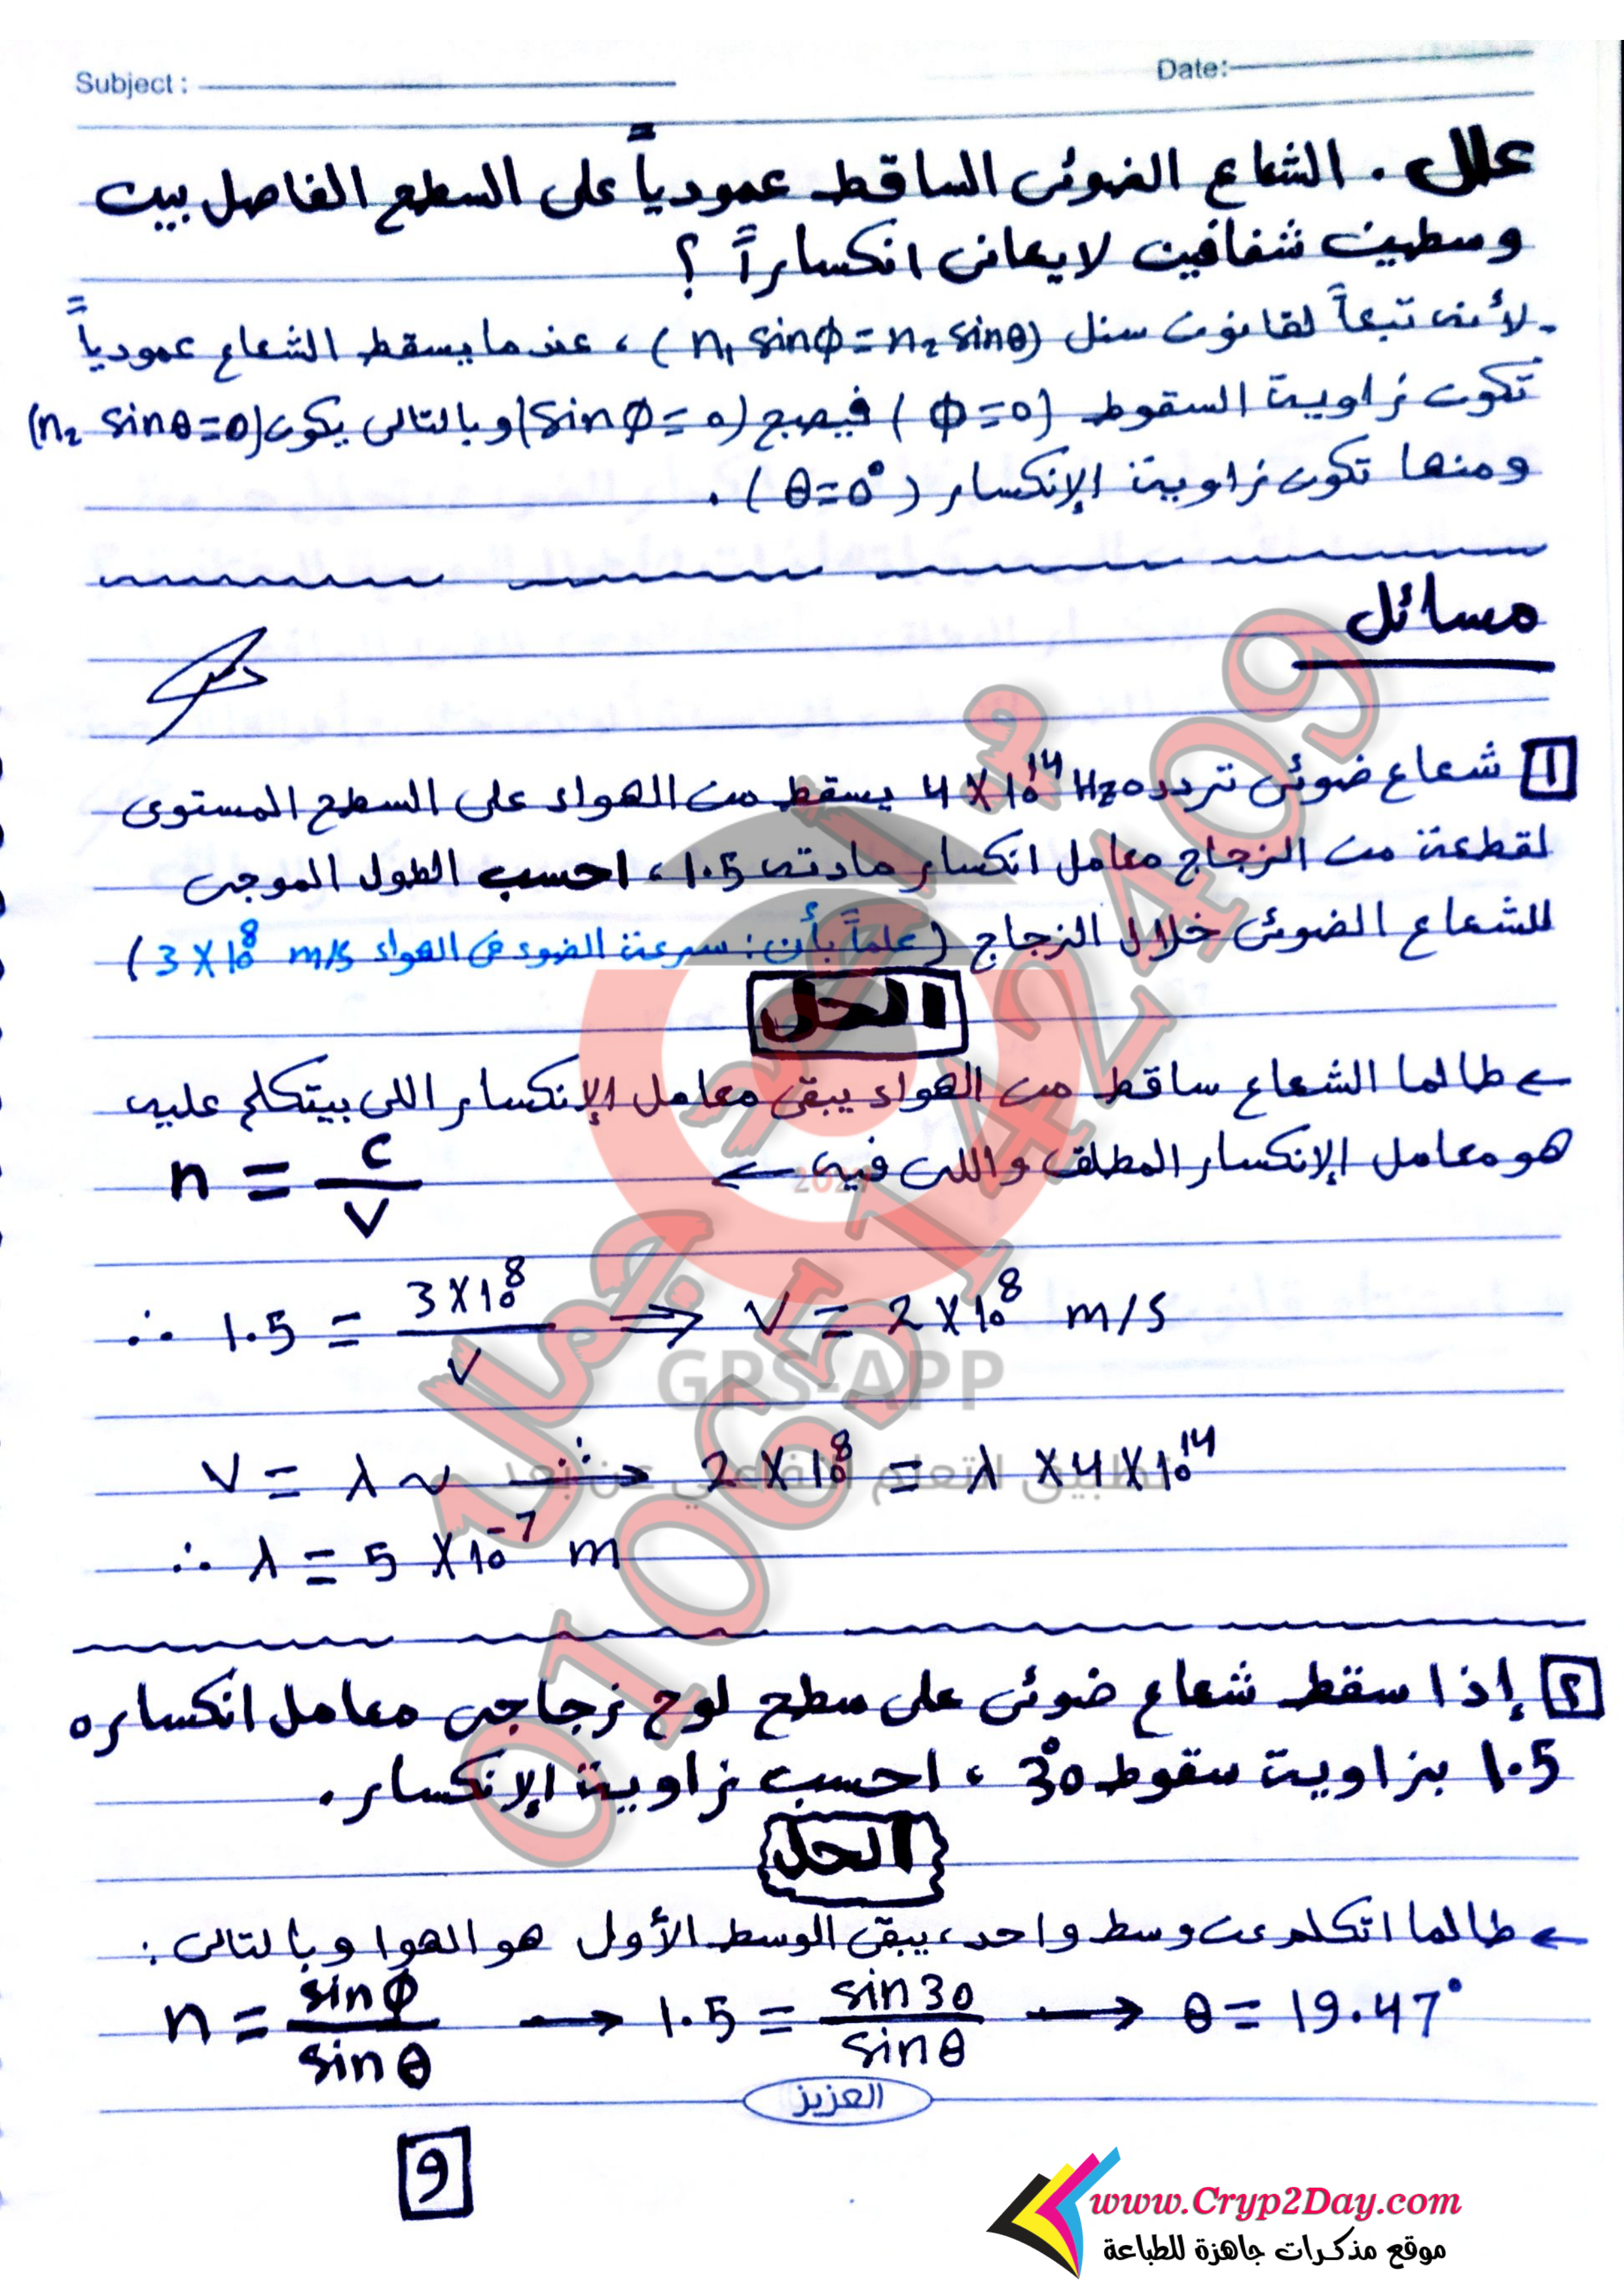 Subject :
Date:
علل . الشعاع الضوئى الساقط عمودياً على السطح الفاصل بين
وسطين شفافين لا يعانى انكساراً ؟
- لأنه تبعاً لقانون سنل (n₁ sinϕ = n₂ sinθ) ، عندما يسقط الشعاع عمودياً
تكون زاوية السقوط (ϕ=0) فيصبح (sin ϕ = 0) وبالتالى يكون (n₂ sinθ=0)
ومنها تكون زاوية الإنكسار (θ=0°) .
مسائل
1 شعاع ضوئى تردده 4 X 10¹⁴ Hz يسقط من الهواء على السطح المستوى
لقطعة من الزجاج معامل انكسار مادته 1.5 ، احسب الطول الموجى
للشعاع الضوئى خلال الزجاج (علماً بأن : سرعة الضوء فى الهواء 3 X 10⁸ m/s)
الحل
← طالما الشعاع ساقط من الهواء يبقى معامل الإنكسار اللى بيتكلم عليه
هو معامل الإنكسار المطلق واللى فيه ← n = c / V
∴ 1.5 = 3 X 10⁸ / V ⟹ V = 2 X 10⁸ m/s
V = λ ν ∴ 2 X 10⁸ = λ X 4 X 10¹⁴
∴ λ = 5 X 10⁻⁷ m
٢ إذا سقط شعاع ضوئى على سطح لوح زجاجى معامل انكساره
1.5 بزاوية سقوط 30° ، احسب زاوية الإنكسار .
الحل
← طالما اتكلم عن وسط واحد ، يبقى الوسط الأول هو الهوا وبالتالى :
n = sin ϕ / sin θ → 1.5 = sin 30 / sin θ → θ = 19.47°
العزيز
9
م / أحمد جمال
01065142409
2024
GPS-APP
تطبيق التعلم التفاعلي عن بعد
www.Cryp2Day.com
موقع مذكرات جاهزة للطباعة